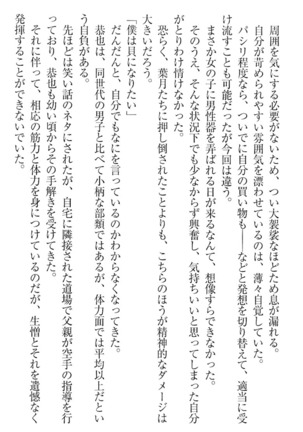 周囲を気にする必要がないため、つい大袈裟なほどため息が漏れる。
自分が苛められやすい雰囲気を漂わせているのは、薄々自覚していた。
パシリ程度なら、ついでに自分の買い物も――などと発想を切り替えて、適当に受
け流すことも可能だったが今回は違う。
まさか女の子に男性器を弄ばれる日が来るなんて、想像すらできなかった。
そのうえ、そんな状況下でも少なからず興奮し、気持ちいいと思ってしまった自分
がとりわけ情けなかった。
恐らく、葉月たちに押し倒されたことよりも、こちらのほうが精神的なダメージは
大きいだろう。
「僕は貝になりたい」
だんだんと、自分でもなにを言っているのかわからなくなってきた。
恭也は、同世代の男子と比べて小柄な部類ではあるが、体力面では平均以上だとい
う自負がある。
先ほどは笑い話のネタにされたが、自宅に隣接された道場で父親が空手の指導を行
っており、恭也も幼い頃からその手解きを受けてきた。
それに伴って、相応の筋力と体力を身につけているのだが、生憎とそれを遺憾なく
発揮することができないでいた。